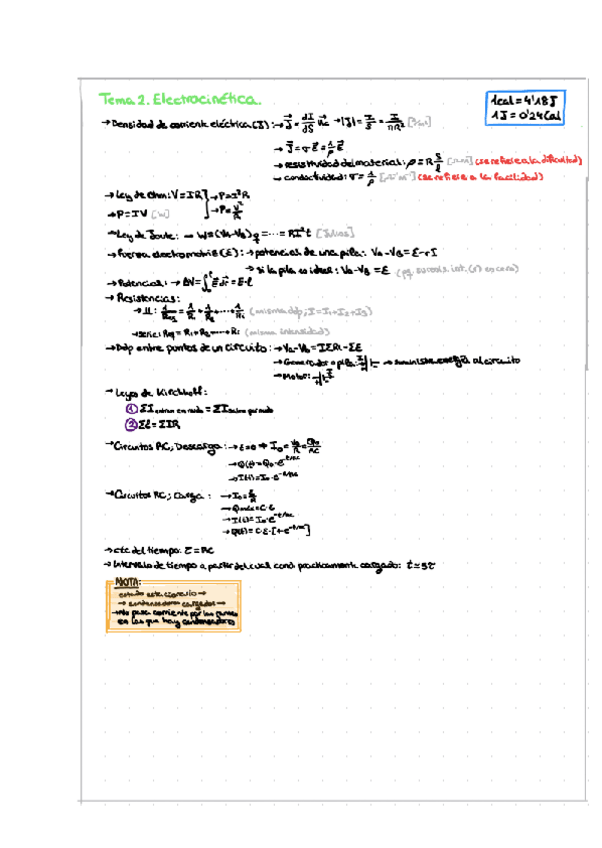 Tema 2. Electrocinética.
1cal = 4'18J
1J = 0'24Cal
→ Densidad de corriente eléctrica (J): → J⃗ = dI/dS u⃗c → |J| = I/S = I/πR²
→ J⃗ = σ·E⃗ = 1/ρ E⃗
→ resistividad del material: ρ = R S/l (se refiere a la dificultad)
→ conductividad: σ = 1/ρ (se refiere a la facilidad)
→ Ley de Ohm: V = IR → P = I²R
→ P = IV [W] → P = V²/R
→ Ley de Joule: → W = (Va-Vb) q = ... = RI²t [Julios]
→ Fuerza electromotriz (E): → potencial de una pila: Va-Vb = E-rI
→ si la pila es ideal: Va-Vb = E
→ Potencial: → ΔV = ∫ E⃗ dr⃗ = E·l
→ Resistencias:
→ 11: 1/Req = 1/R1 + 1/R2 + ... + 1/Ri (misma ddp; I = I1+I2+I3)
→ serie: Req = R1+R2...+Ri (misma intensidad)
→ Ddp entre puntos de un circuito: → Va-Vb = IΣRi - ΣE
→ Generador o pila: → suministra energía al circuito
→ Motor:
→ Leyes de Kirchhoff:
① ΣI entran en nudo = ΣI salen por nudo
② ΣE = ΣIR
→ Circuitos RC; Descarga: → t=0 ⇒ I0 = V0/R = Q0/RC
→ Q(t) = Q0·e^-t/RC
→ I(t) = I0·e^-t/RC
→ Circuitos RC; Carga: → I0 = E/R
→ Qmáx = C·E
→ I(t) = I0·e^-t/RC
→ Q(t) = C·E·[1-e^-t/RC]
→ cte del tiempo: τ = RC
→ Intervalo de tiempo a partir del cual cond. practicamente cargado: t = 5τ
NOTA:
estado estacionario →
→ condensadores cargados →
→ no pasa corriente por las ramas
en las que hay condensadores